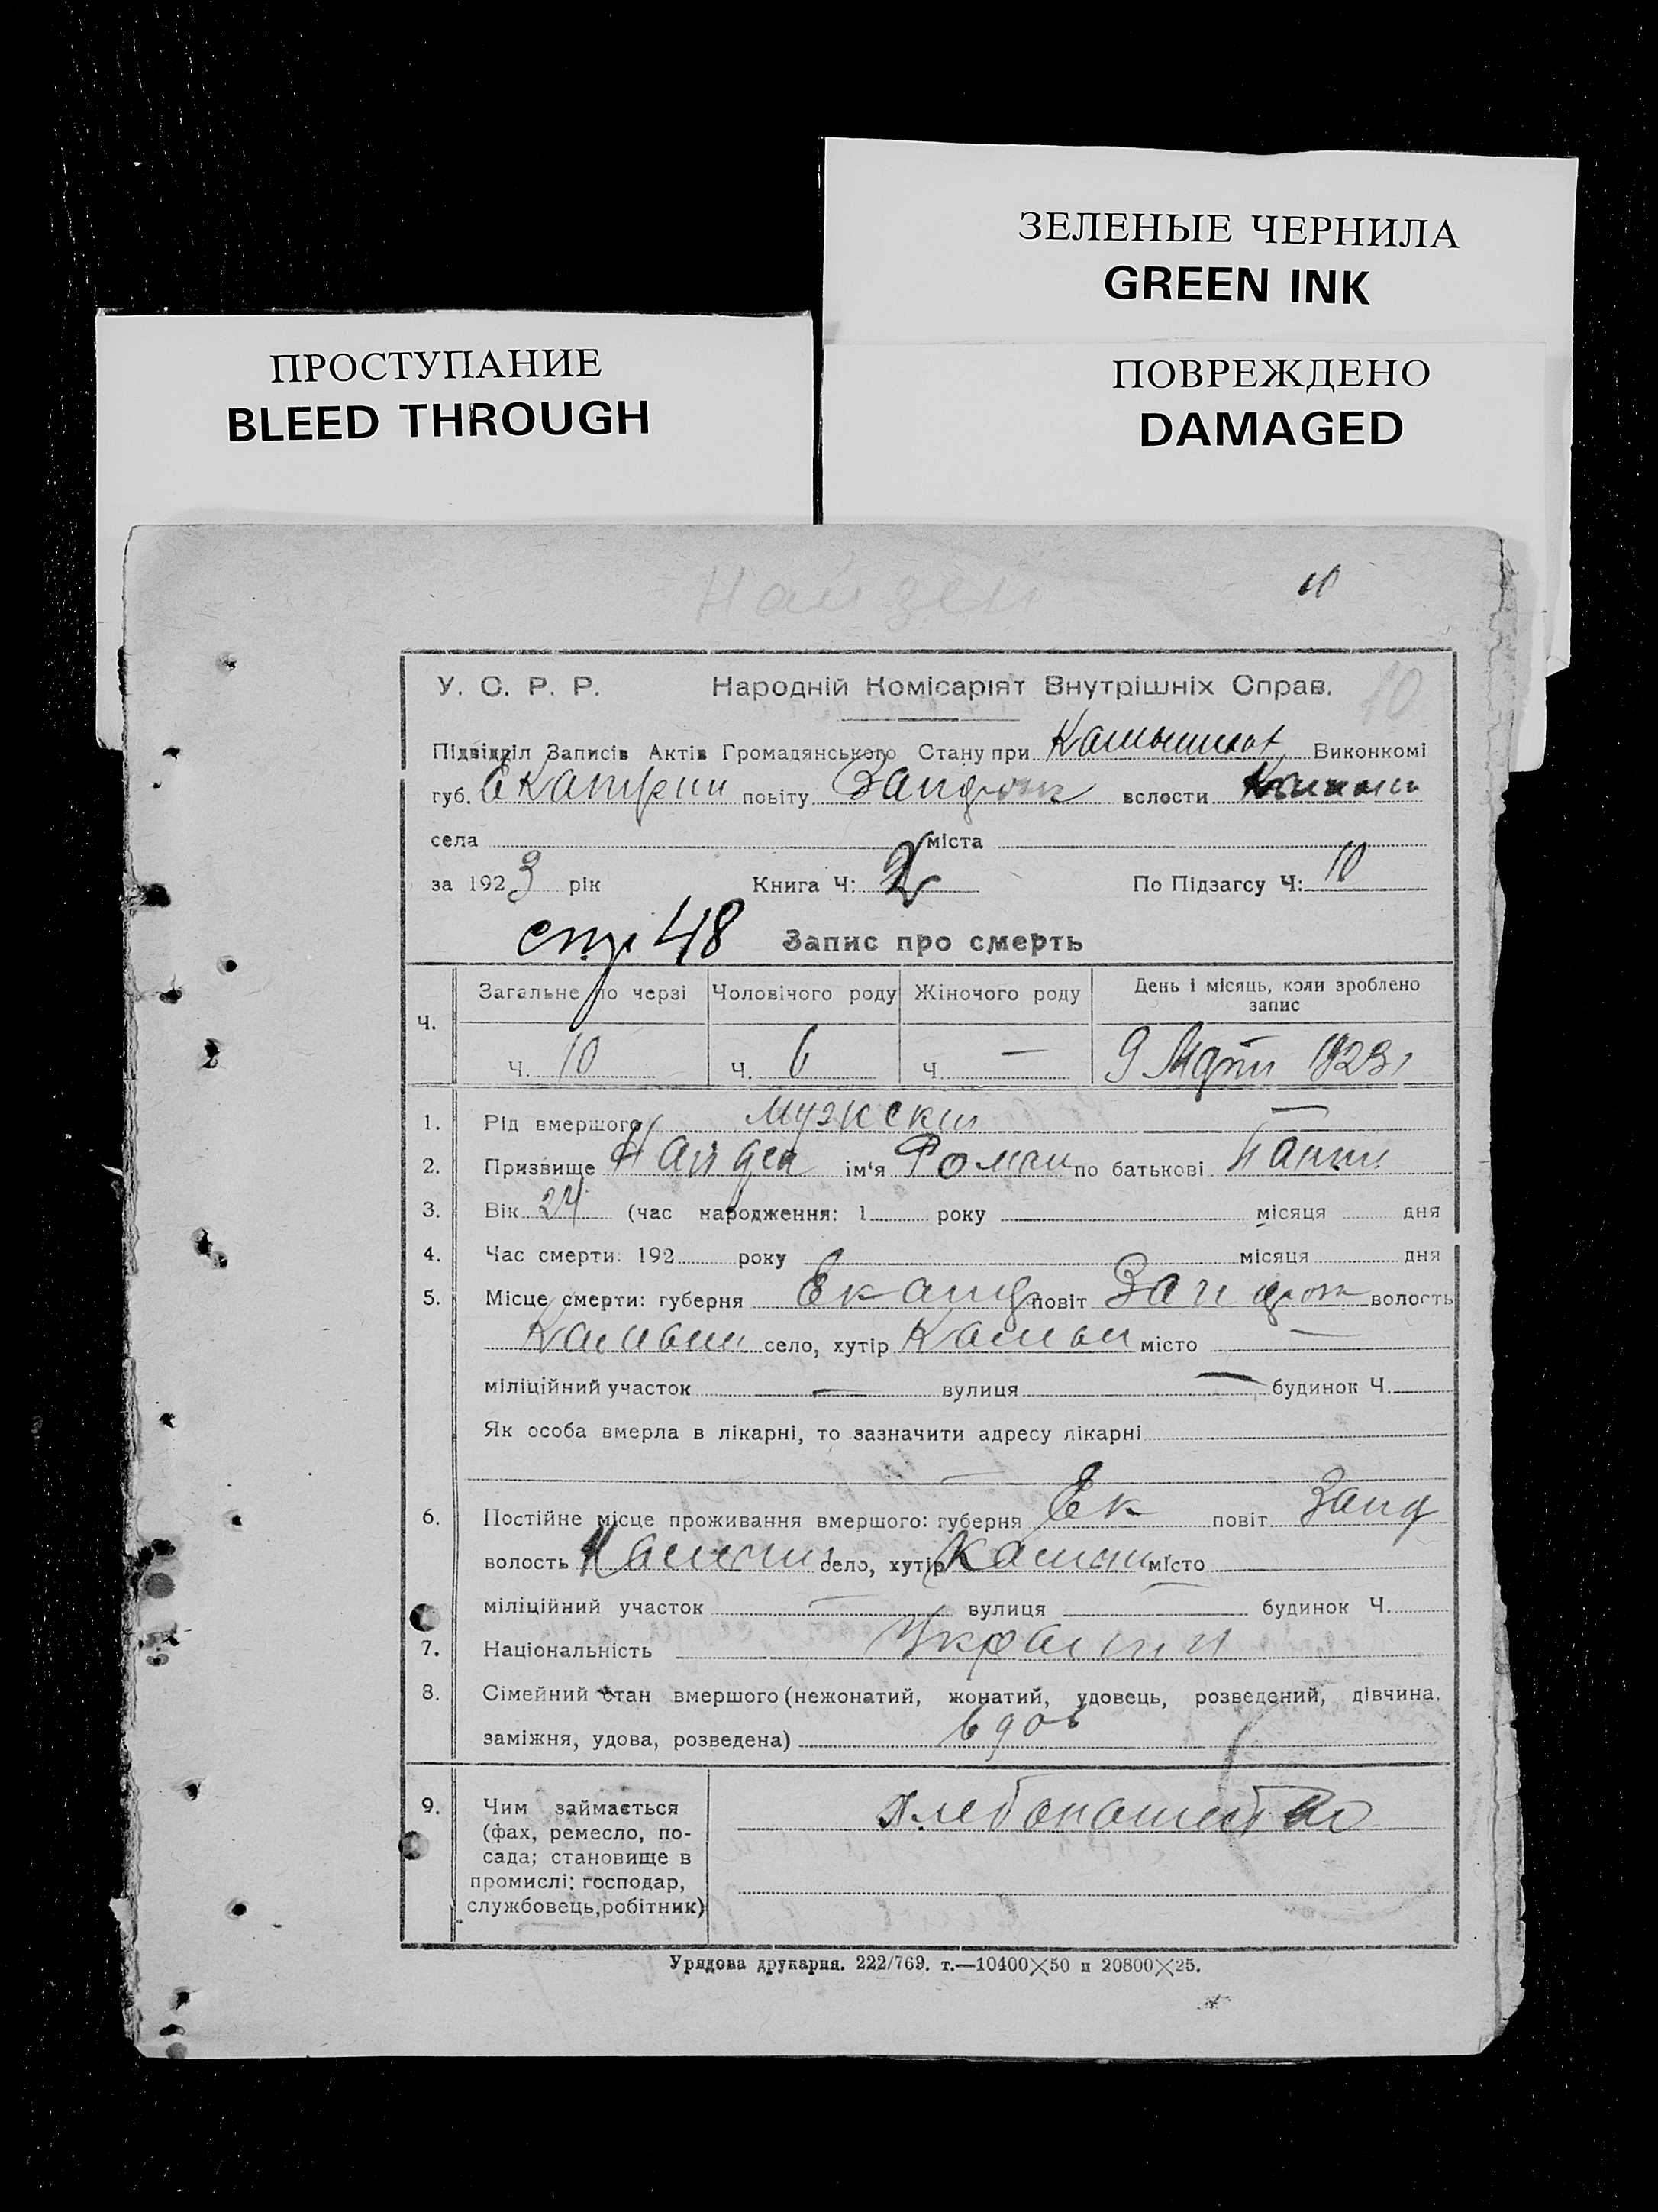 ЗЕЛЕНЫЕ ЧЕРНИЛА
GREEN INK
ПРОСТУПАНИЕ
BLEED THROUGH
ПОВРЕЖДЕНО
DAMAGED
У. С. Р. Р. Народній Комісаріят Внутрішніх Справ. 10
Підвідділ Записів Актів Громадянського Стану при Виконкомі
губ. Екатрин повіту волости
села міста
за 1923 рік Книга Ч: 2 По Підзагсу Ч: 10
стр 48 Запис про смерть
Загальне по черзі Чоловічого роду Жіночого роду День і місяць, коли зроблено запис
Ч.
Ч. 10 Ч. 6 Ч — 9 Март 1923 г
1. Рід вмершого мужский —
2. Призвище Найден ім'я Роман по батькові
3. Вік 24 (час народження: 1 року місяця дня
4. Час смерти: 192 року місяця дня
5. Місце смерти: губерня повіт волость
Камыш село, хутір Камыш місто —
міліційний участок — вулиця — будинок Ч.
Як особа вмерла в лікарні, то зазначити адресу лікарні
—
6. Постійне місце проживання вмершого: губерня Ек повіт Зап
волость Камыш село, хутір Камыш місто —
міліційний участок — вулиця будинок Ч.
7. Національність Украин
8. Сімейний стан вмершого (нежонатий, жонатий, удовець, розведений, дівчина,
заміжня, удова, розведена) вдов
9. Чим займається
(фах, ремесло, по-
сада; становище в
промислі: господар,
службовець, робітник)
хлебопашество
Урядова друкарня. 222/769. т.—10400×50 и 20800×25.